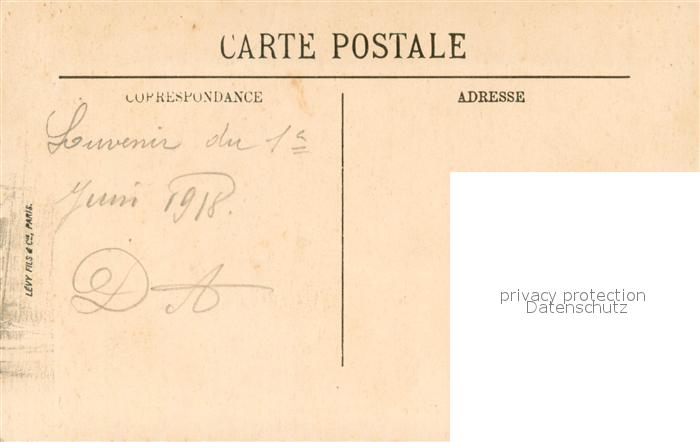 CARTE POSTALE
CORRESPONDANCE
ADRESSE
Souvenir du 1er
Juin 1918.
DA
LÉVY FILS & Cie, PARIS.
privacy protection
Datenschutz